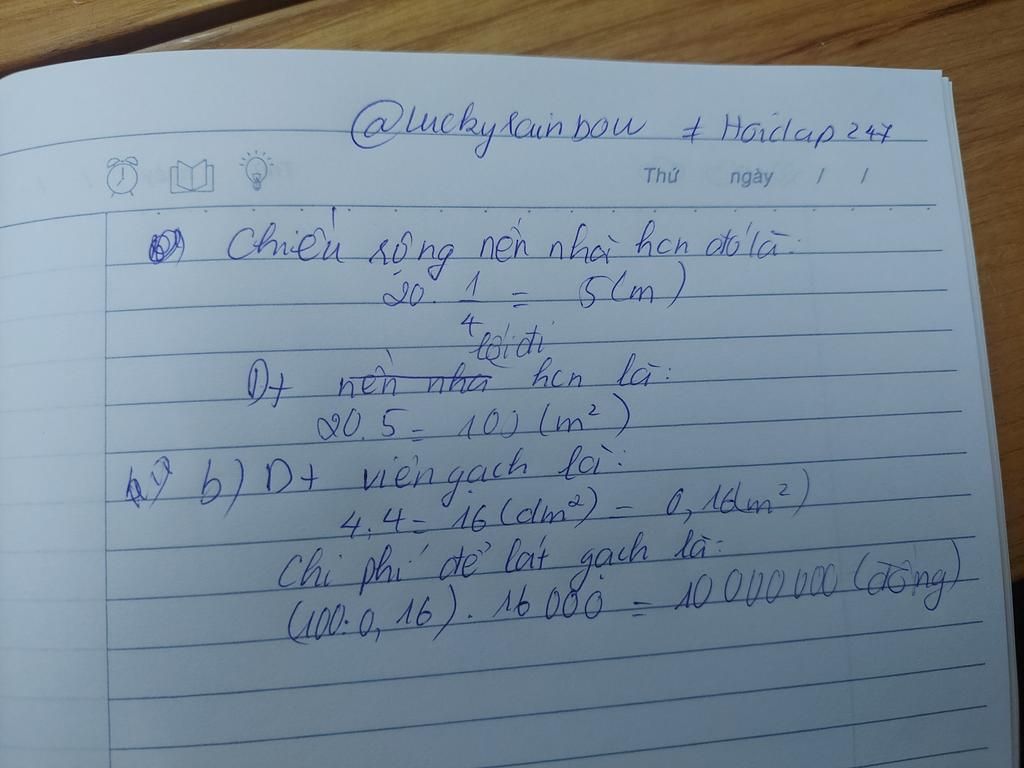 @luckyrainbow # Hoidap 247
Thứ ngày / /
a) Chiều rộng nền nhà hcn đó là:
20. 1/4 = 5(m)
lối đi
Dt nền nhà hcn là:
20.5 = 100 (m²)
b) Dt viên gạch là:
4.4 = 16(dm²) = 0,16(m²)
Chi phí để lát gạch là:
(100:0,16). 16 000 = 10 000 000 (đồng)